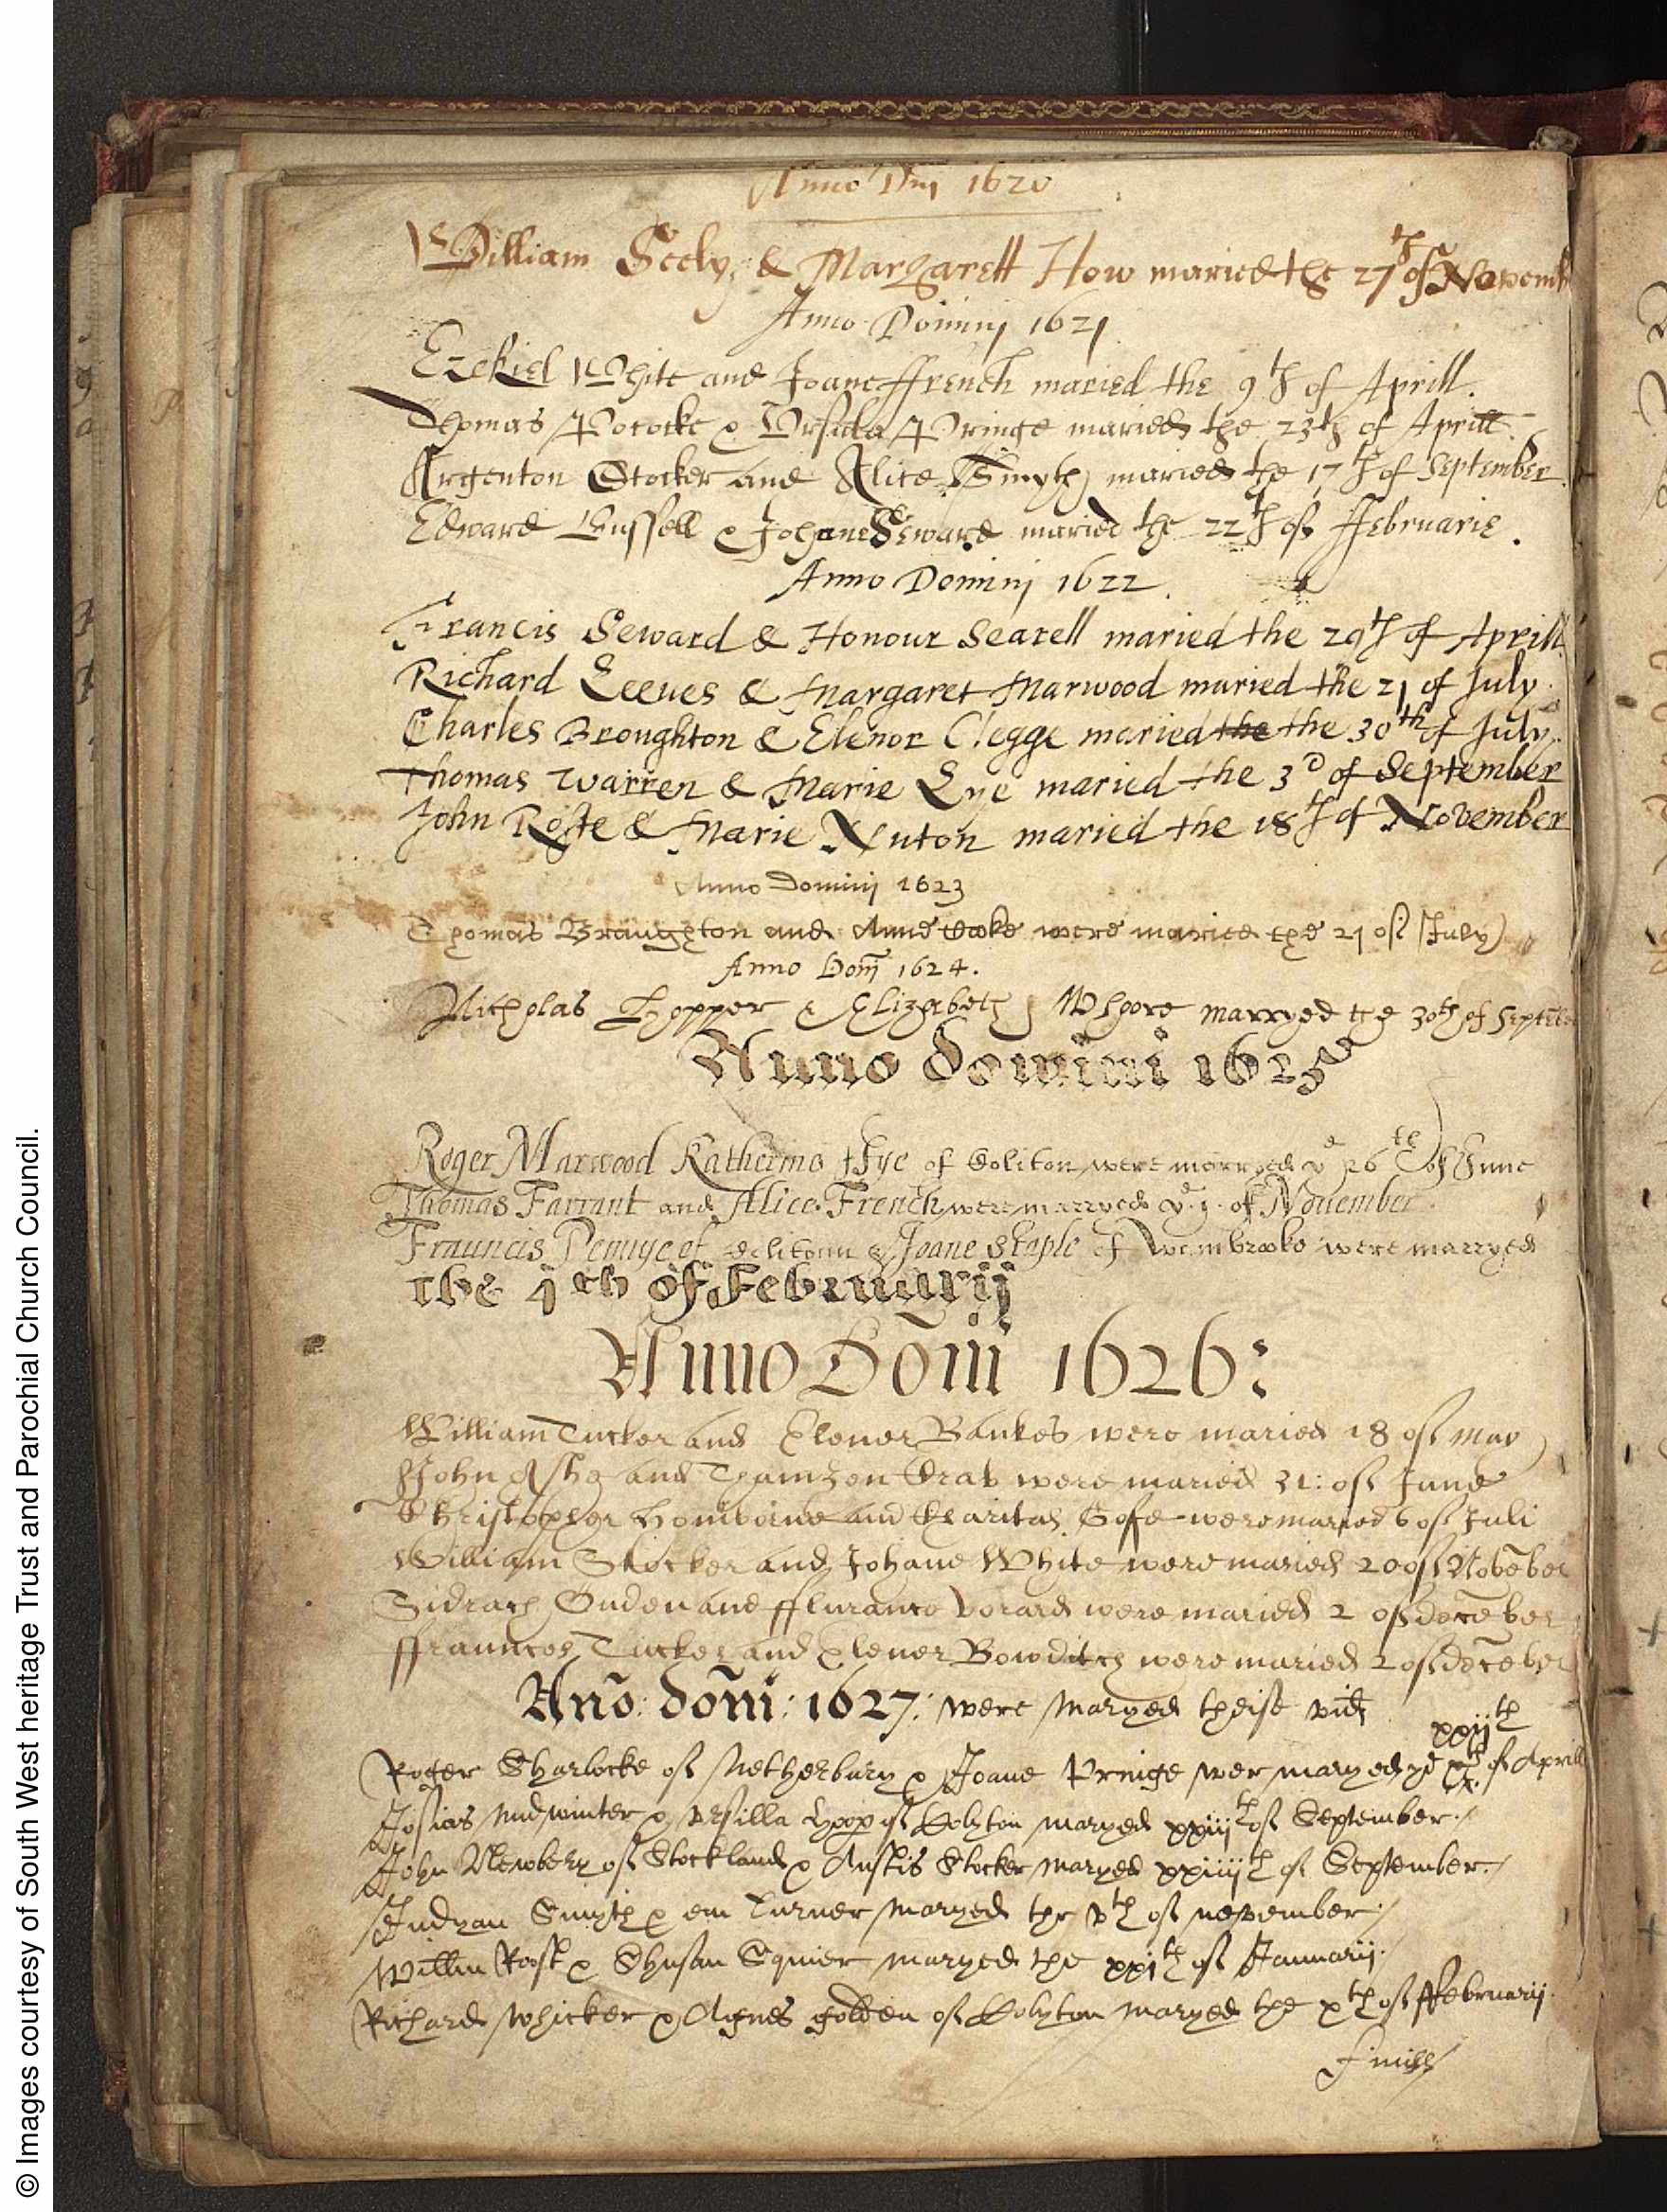 Anno Dni 1620
William Seely & Margarett How maried the 27th of Novemb
Anno Dominj 1621
Ezekiel White and Joane ffrench maried the 9th of Aprill.
Thomas Pococke & Ursula Pringe maried the 23th of Aprill.
Argenton Stocker and Alice Smyth maried the 17th of September.
Edward Bussell & Johane Seward maried the 22th of ffebruarie.
Anno Dominj 1622.
Francis Seward & Honour Searell maried the 29th of Aprill.
Richard Leeves & Margaret Marwood maried the 21 of July.
Charles Broughton & Elenor Clegge maried the the 30th of July.
Thomas Warren & Marie Lye maried the 3d of September
John Roste & Marie Nuton maried the 18th of November
Anno Dominij 1623
Thomas Braughton and Anne Cooke were maried the 21 of July
Anno Dom 1624.
Nicholas Hopper & Elizabeth Whore marryed the 30th of Septe
Anno domini 1625
Roger Marwood Katherine Hye of Coliton were marryed ye 26th of June
Thomas Farrant and Alice French were marryed ye . j . of November.
Frauncis Pennye of Colitonn & Joane Staple of Wembrooke were marryed
the 4th of Februarij
Anno Domi 1626:
William Tucker and Elener Bankes were maried 18 of may
John and Thamzen Crab were maried 31: of June
Christopher and Charitas Gofe were maried 6 of Juli
William Stocker and Johane White were maried 20 of Novēber
Sidrach and were maried 2 of decēber
ffraunces Tucker and Elener Bowditch were maried 2 of decēber
Ano: domi: 1627: were Maryed theise vidz
xxijth
Roger Sharlocke of Netherbury & Joane Pringe wer maryed ye of Aprill
Josias Midwinter & Ursilla of Colyton maryed xxiijth of September.
John Newbery of Stockland & Anstis Stocker maryed xxiiijth of September.
Smyth & em Turner maryed the vth of november.
Willm Rost & Shusan Squier maryed the xxjth of Januarij.
Richard Whicker & Agnes golden of Colyton maryed the xth of ffebruarij.
finis
© Images courtesy of South West heritage Trust and Parochial Church Council.